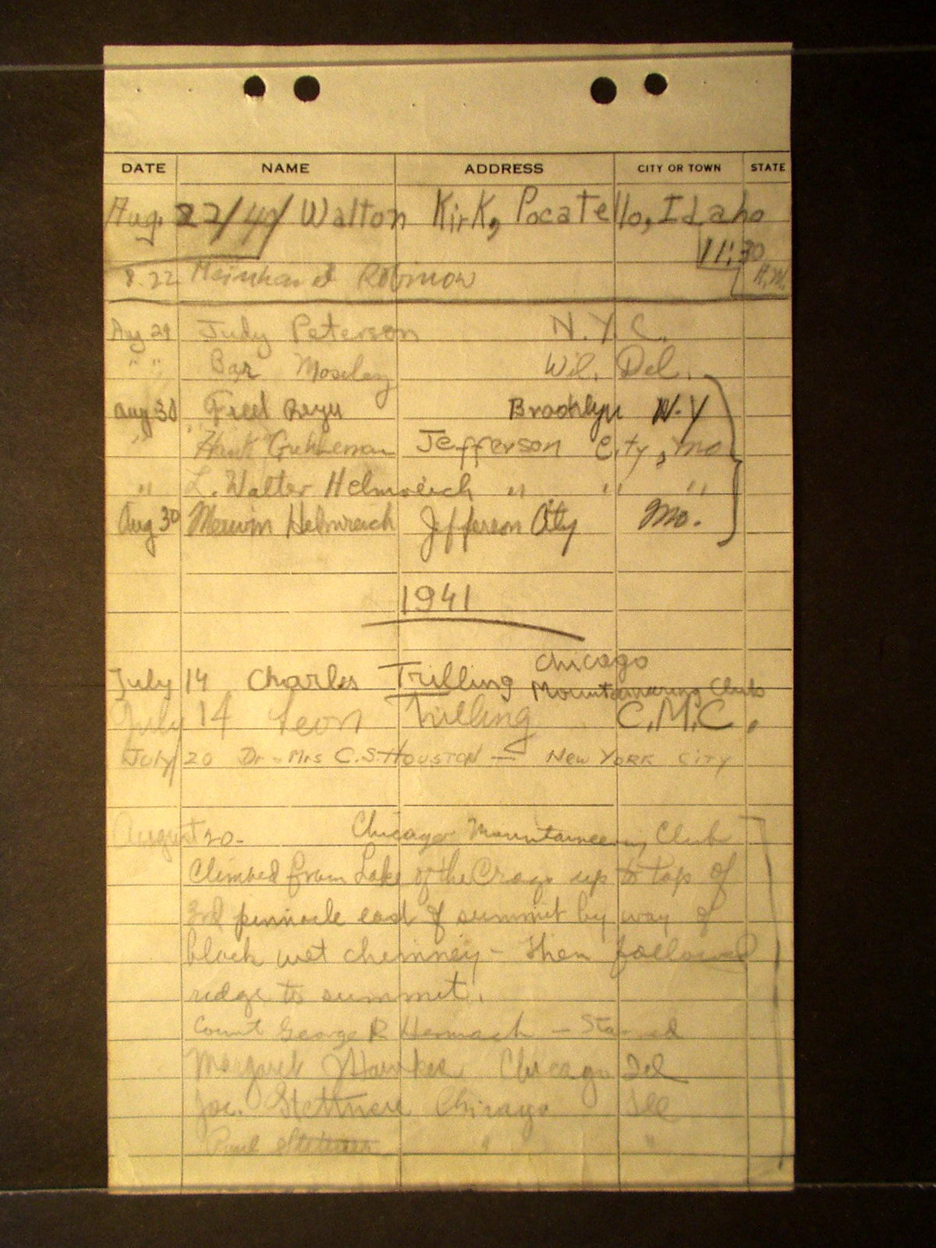 DATE NAME ADDRESS CITY OR TOWN STATE
Aug. 22/40 Walton Kirk, Pocatello, Idaho
11:30 A.M.
8.22 Meinhard Robinow
Aug 29 Judy Peterson N.Y.C.
" " Bar Moseley Wil. Del.
Aug 30 Fred Brooklyn N.Y
" Hank Jefferson City, Mo
" L. Walter Helmreich " " "
Aug 30 Mervin Helmreich Jefferson City Mo.
1941
July 14 Charles Trilling Chicago Mountaineering Club
July 14 Leon Trilling C.M.C.
July 20 Dr - Mrs C.S. Houston — New York City
August 20- Chicago Mountaineering Club
Climbed from Lake of the Crags up to top of
3rd pinnacle east of summit by way of
black wet chimney - then followed
ridge to summit.
Count George R
Margaret Hawkes Chicago Ill
Joe. Stettner Chicago Ill
Paul Stettner " "